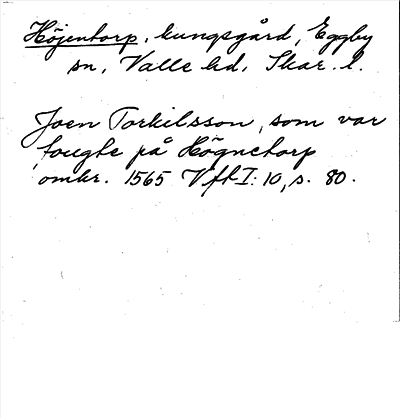 Höjentorp, kungsgård, Eggby
sn, Valle hd, Skar. l.
Joen Torkilsson, som var
fougte på Högnetorp
omkr. 1565 VfT I: 10, s. 80.